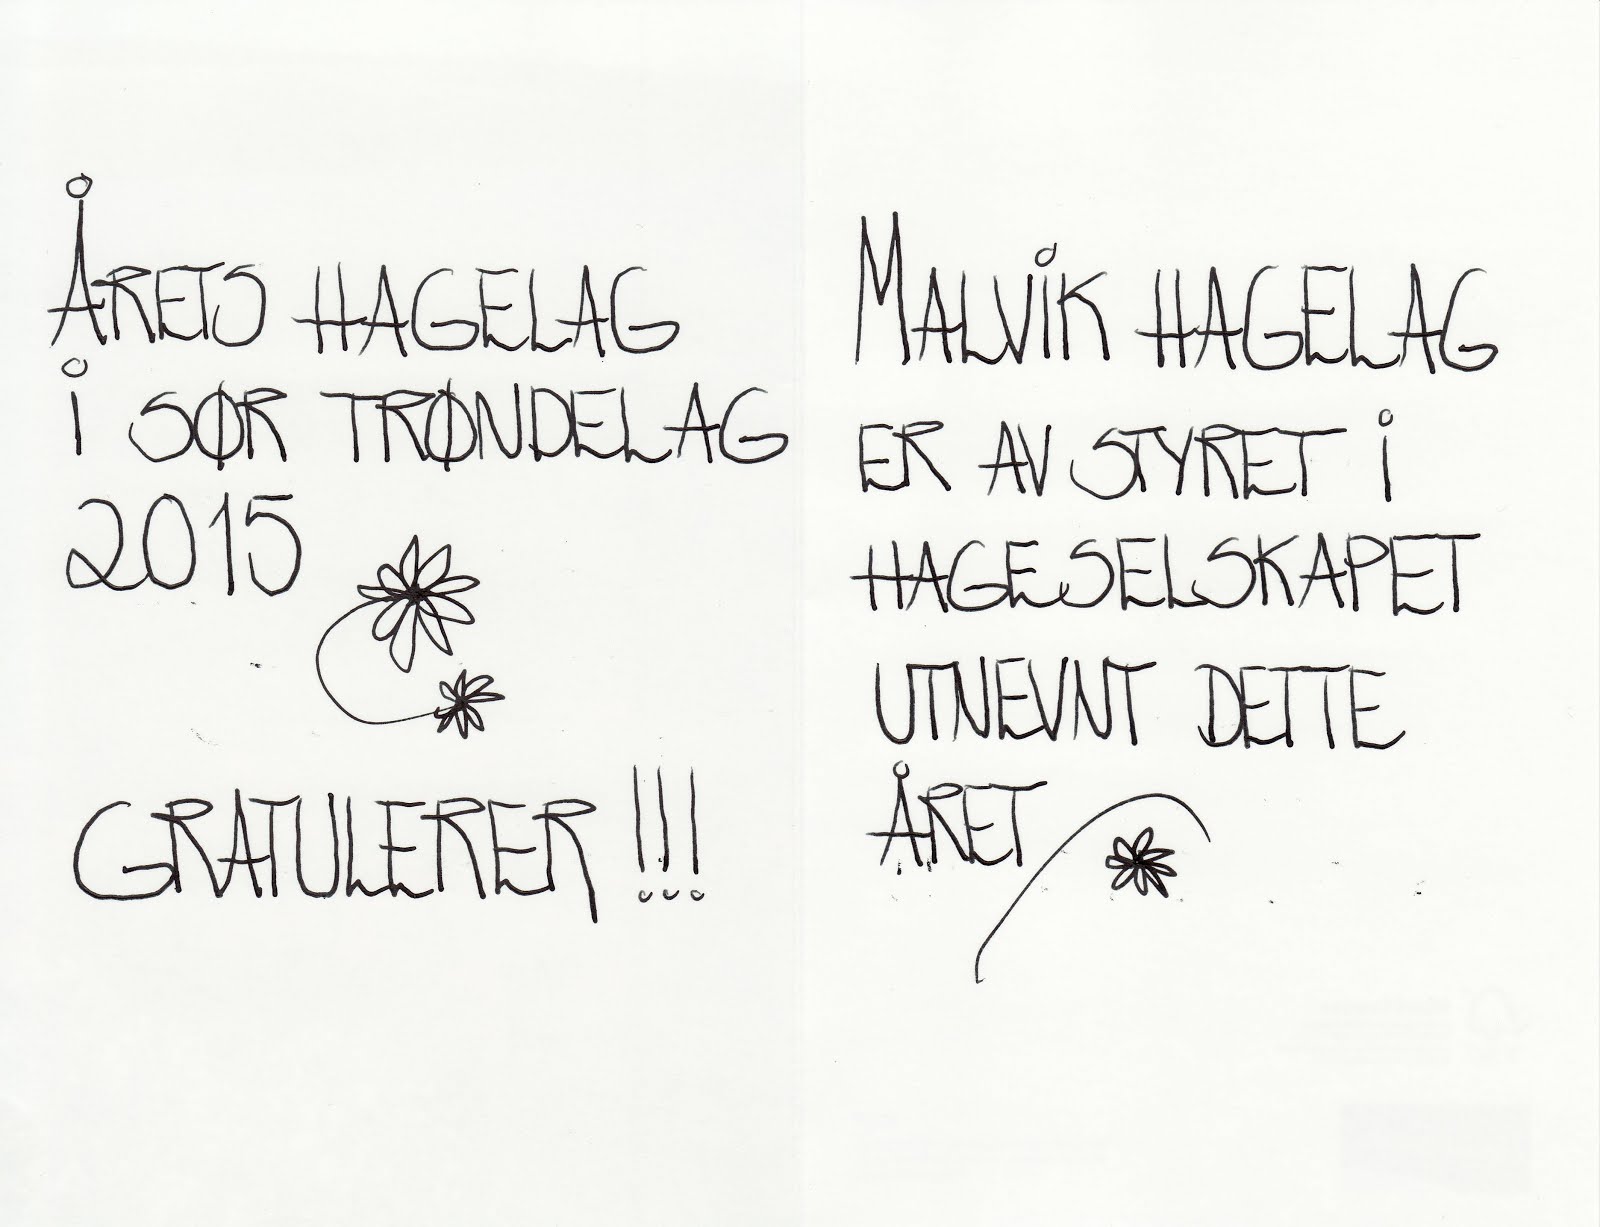 ÅRETS HAGELAG
I SØR TRØNDELAG
2015
GRATULERER !!!
MALVIK HAGELAG
ER AV STYRET I
HAGESELSKAPET
UTNEVNT DETTE
ÅRET